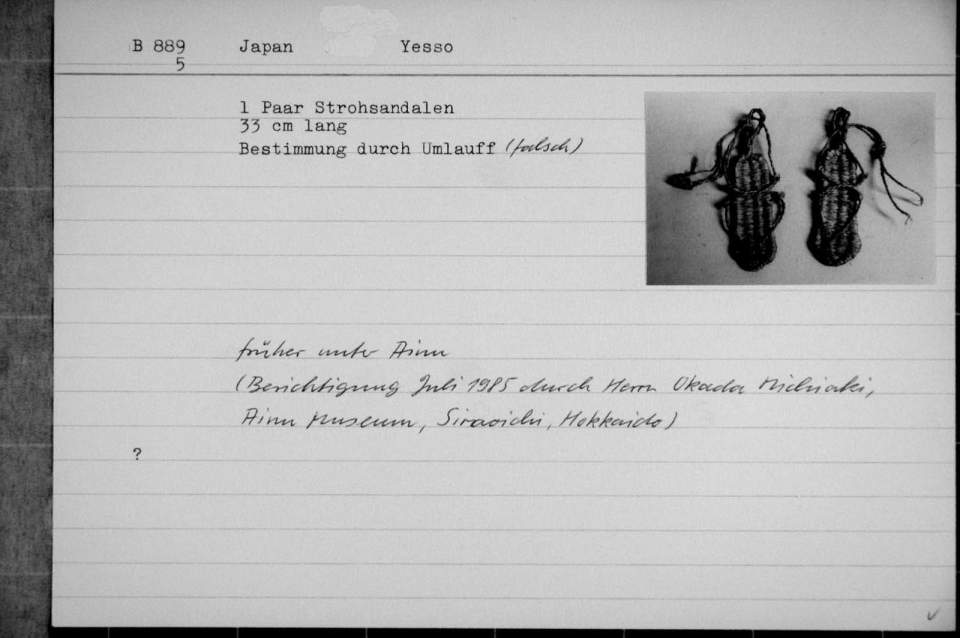 B 889 Japan Yesso
5
1 Paar Strohsandalen
33 cm lang
Bestimmung durch Umlauff (falsch)
früher unter Ainu
(Berichtigung Juli 1985 durch Herrn Okada Michiaki,
Ainu Museum, Siraoichi, Hokkaido)
?